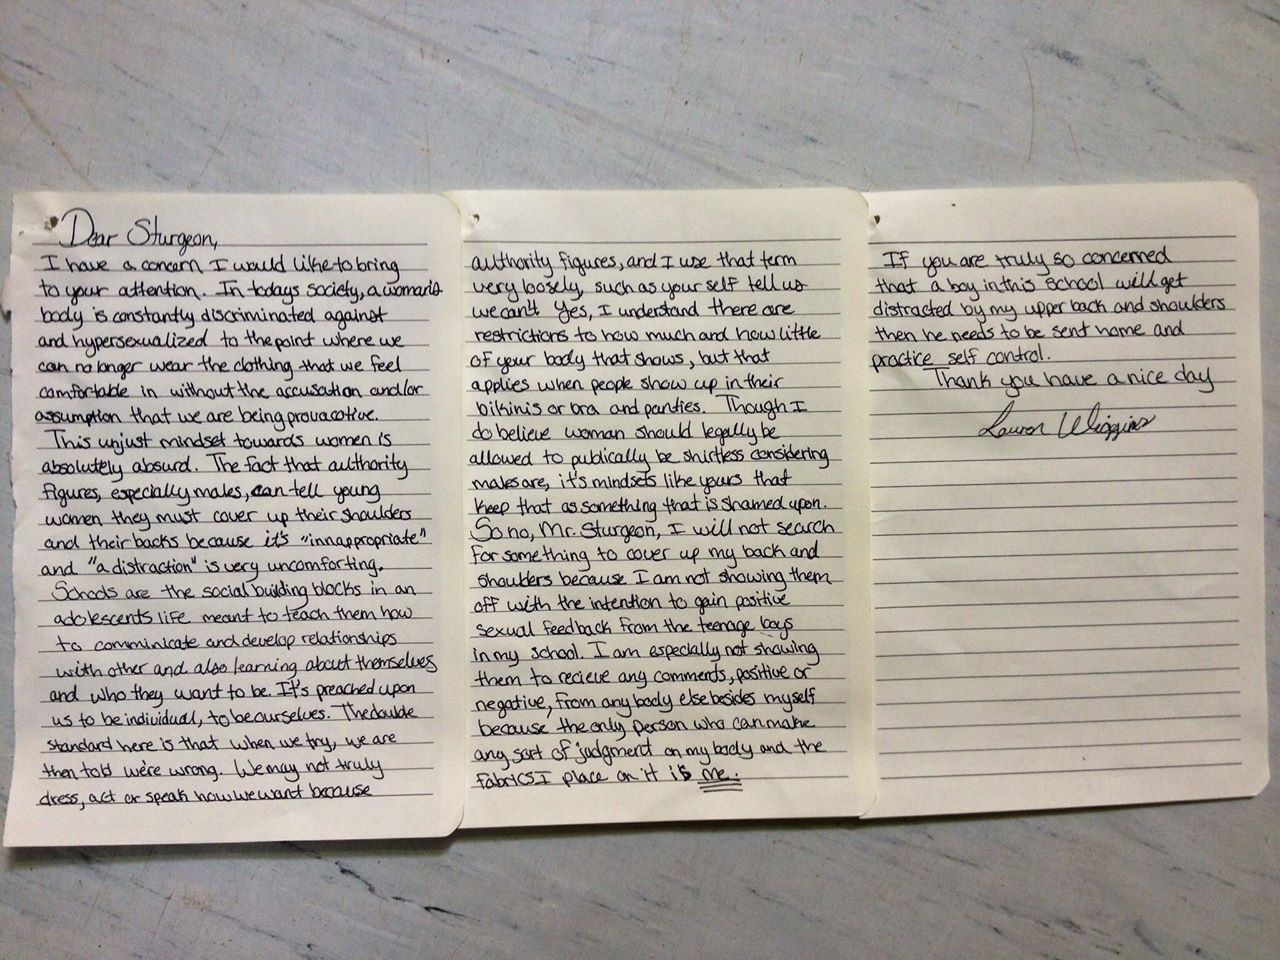 Dear Sturgeon,
I have a concern I would like to bring
to your attention. In todays society, a womans
body is constantly discriminated against
and hypersexualized to the point where we
can no longer wear the clothing that we feel
comfortable in without the accusation and/or
assumption that we are being provacotive.
This unjust mindset towards women is
absolutely absurd. The fact that authority
figures, especially males, can tell young
women they must cover up their shoulders
and their backs because it's "innappropriate"
and "a distraction" is very uncomforting.
Schools are the social building blocks in an
adolescents life meant to teach them how
to commicate and develop relationships
with other and also learning about themselves
and who they want to be. It's preached upon
us to be individual, to be ourselves. The double
standard here is that when we try, we are
then told we're wrong. We may not truly
dress, act or speak how we want because
authority figures, and I use that term
very loosely, such as your self tell us
we can't. Yes, I understand there are
restrictions to how much and how little
of your body that shows, but that
applies when people show up in their
bikinis or bra and panties. Though I
do believe woman should legally be
allowed to publically be shirtless considering
males are, it's mindsets like yours that
keep that as something that is shamed upon.
So no, Mr. Sturgeon, I will not search
for something to cover up my back and
shoulders because I am not showing them
off with the intention to gain positive
sexual feedback from the teenage boys
in my school. I am especially not showing
them to recieve any comments, positive or
negative, from any body else besides myself
because the only person who can make
any sort of judgment on my body and the
fabrics I place on it is me.
If you are truly so concerned
that a boy in this school will get
distracted by my upper back and shoulders
then he needs to be sent home and
practice self control.
Thank you have a nice day
Lauren Wiggins